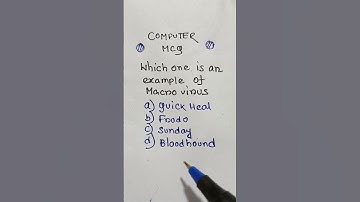 COMPUTER
MCQ
Which one is an
example of
Macro virus
a) Quick Heal
b) Frodo
c) Sunday
d) Bloodhound